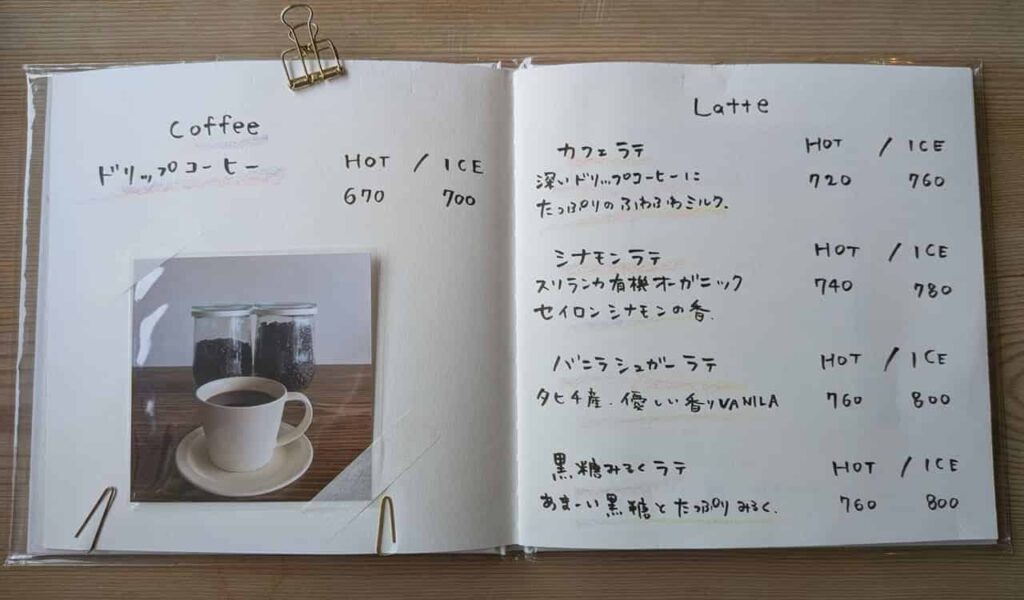 Coffee
ドリップコーヒー HOT / ICE
670 700
Latte
カフェラテ HOT / ICE
深いドリップコーヒーに 720 760
たっぷりのふわふわミルク.
シナモンラテ HOT / ICE
スリランカ有機オーガニック 740 780
セイロンシナモンの香.
バニラシュガーラテ HOT / ICE
タヒチ産.優しい香りVANILA 760 800
黒糖みるくラテ HOT / ICE
あまーい黒糖とたっぷりみるく. 760 800